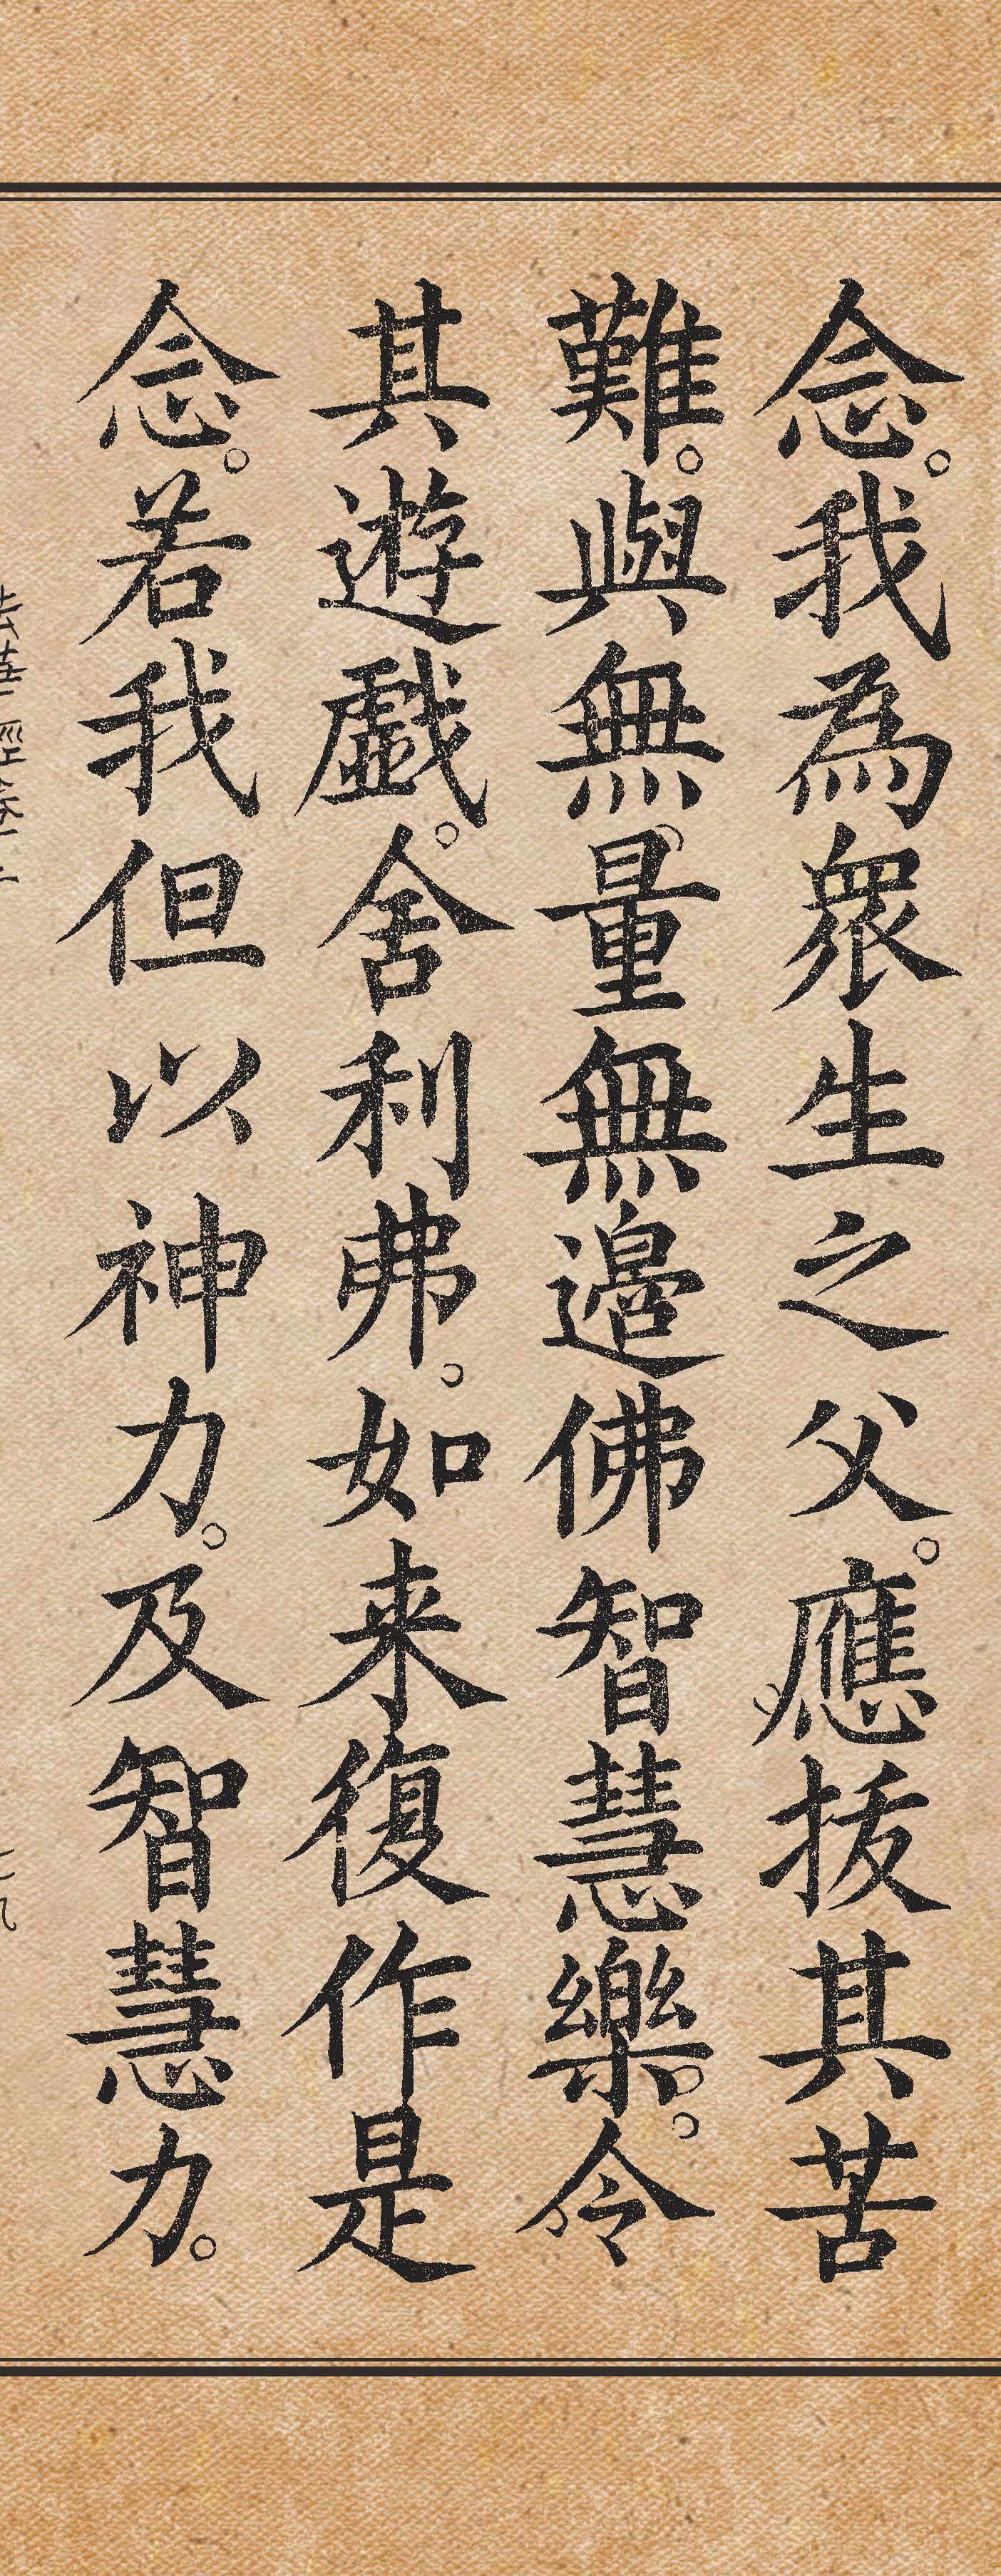 念。我為衆生之父。應拔其苦
難。與無量無邊佛智慧樂。令
其遊戲。舍利弗。如来復作是
念。若我但以神力。及智慧力。
法華經卷二